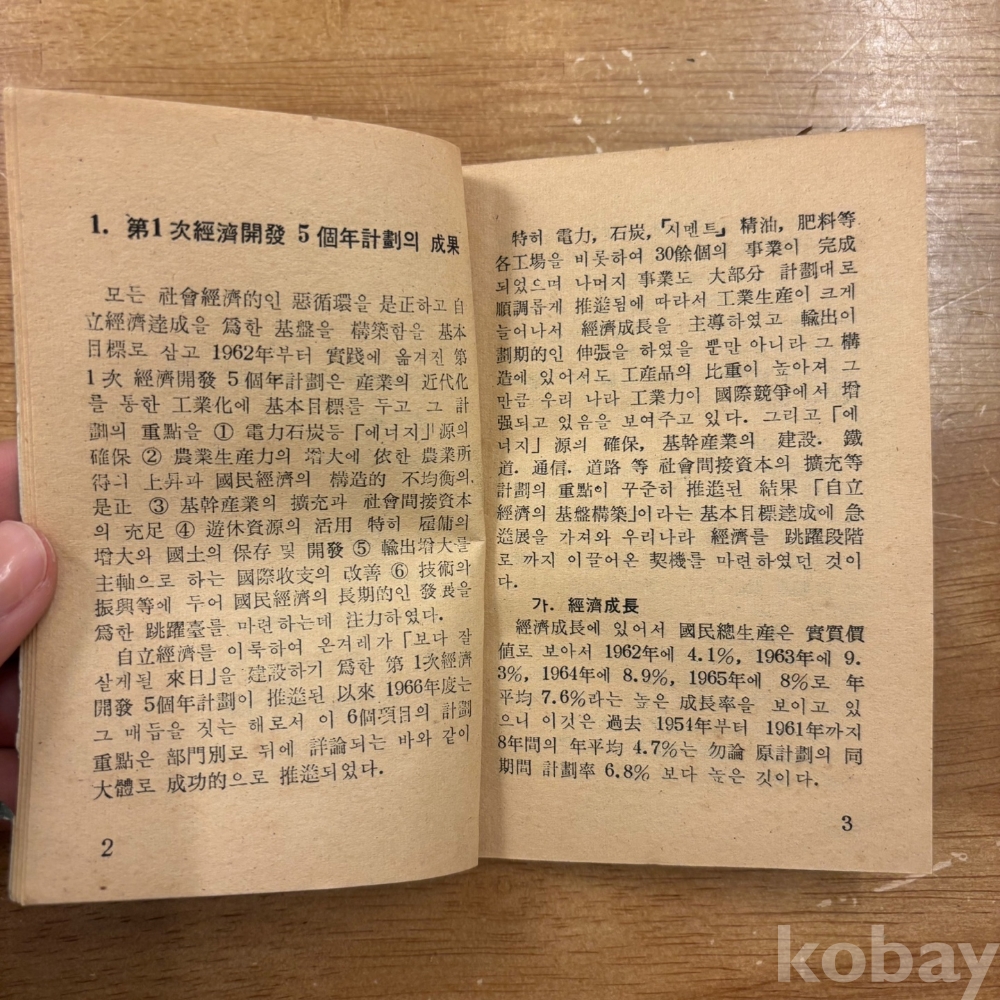 1. 第1次經濟開發 5個年計劃의 成果
모든 社會經濟的인 惡循環을 是正하고 自
立經濟達成을 爲한 基盤을 構築함을 基本
目標로 삼고 1962年부터 實踐에 옮겨진 第
1次 經濟開發 5個年計劃은 産業의 近代化
를 통한 工業化에 基本目標를 두고 그 計
劃의 重點을 ① 電力石炭等「에너지」源의
確保 ② 農業生産力의 增大에 依한 農業所
得의 上昇과 國民經濟의 構造的 不均衡의
是正 ③ 基幹産業의 擴充과 社會間接資本
의 充足 ④ 遊休資源의 活用 特히 雇傭의
增大와 國土의 保存 및 開發 ⑤ 輸出增大를
主軸으로 하는 國際收支의 改善 ⑥ 技術의
振興等에 두어 國民經濟의 長期的인 發展을
爲한 跳躍臺를 마련하는데 注力하였다.
自立經濟를 이룩하여 온겨레가「보다 잘
살게될 來日」을 建設하기 爲한 第1次經濟
開發 5個年計劃이 推進된 以來 1966年度는
그 매듭을 짓는 해로서 이 6個項目의 計劃
重點은 部門別로 뒤에 詳論되는 바와 같이
大體로 成功的으로 推進되었다.
2
特히 電力, 石炭,「시멘트」精油, 肥料等
各工場을 비롯하여 30餘個의 事業이 完成
되었으며 나머지 事業도 大部分 計劃대로
順調롭게 推進됨에 따라서 工業生産이 크게
늘어나서 經濟成長을 主導하였고 輸出이
劃期的인 伸張을 하였을 뿐만 아니라 그 構
造에 있어서도 工産品의 比重이 높아져 그
만큼 우리 나라 工業力이 國際競爭에서 增
强되고 있음을 보여주고 있다. 그리고「에
너지」源의 確保, 基幹産業의 建設. 鐵
道. 通信. 道路 等 社會間接資本의 擴充等
計劃의 重點이 꾸준히 推進된 結果「自立
經濟의 基盤構築」이라는 基本目標達成에 急
進展을 가져와 우리나라 經濟를 跳躍段階
로 까지 이끌어온 契機를 마련하였던 것이
다.
가. 經濟成長
經濟成長에 있어서 國民總生産은 實質價
値로 보아서 1962年에 4.1%, 1963年에 9.
3%, 1964年에 8.9%, 1965年에 8%로 年
平均 7.6%라는 높은 成長率을 보이고 있
으니 이것은 過去 1954年부터 1961年까지
8年間의 年平均 4.7%는 勿論 原計劃의 同
期間 計劃率 6.8% 보다 높은 것이다.
3
kobay